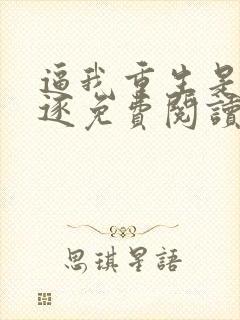 逼我重生是
逐免費閱讀
思琪星語